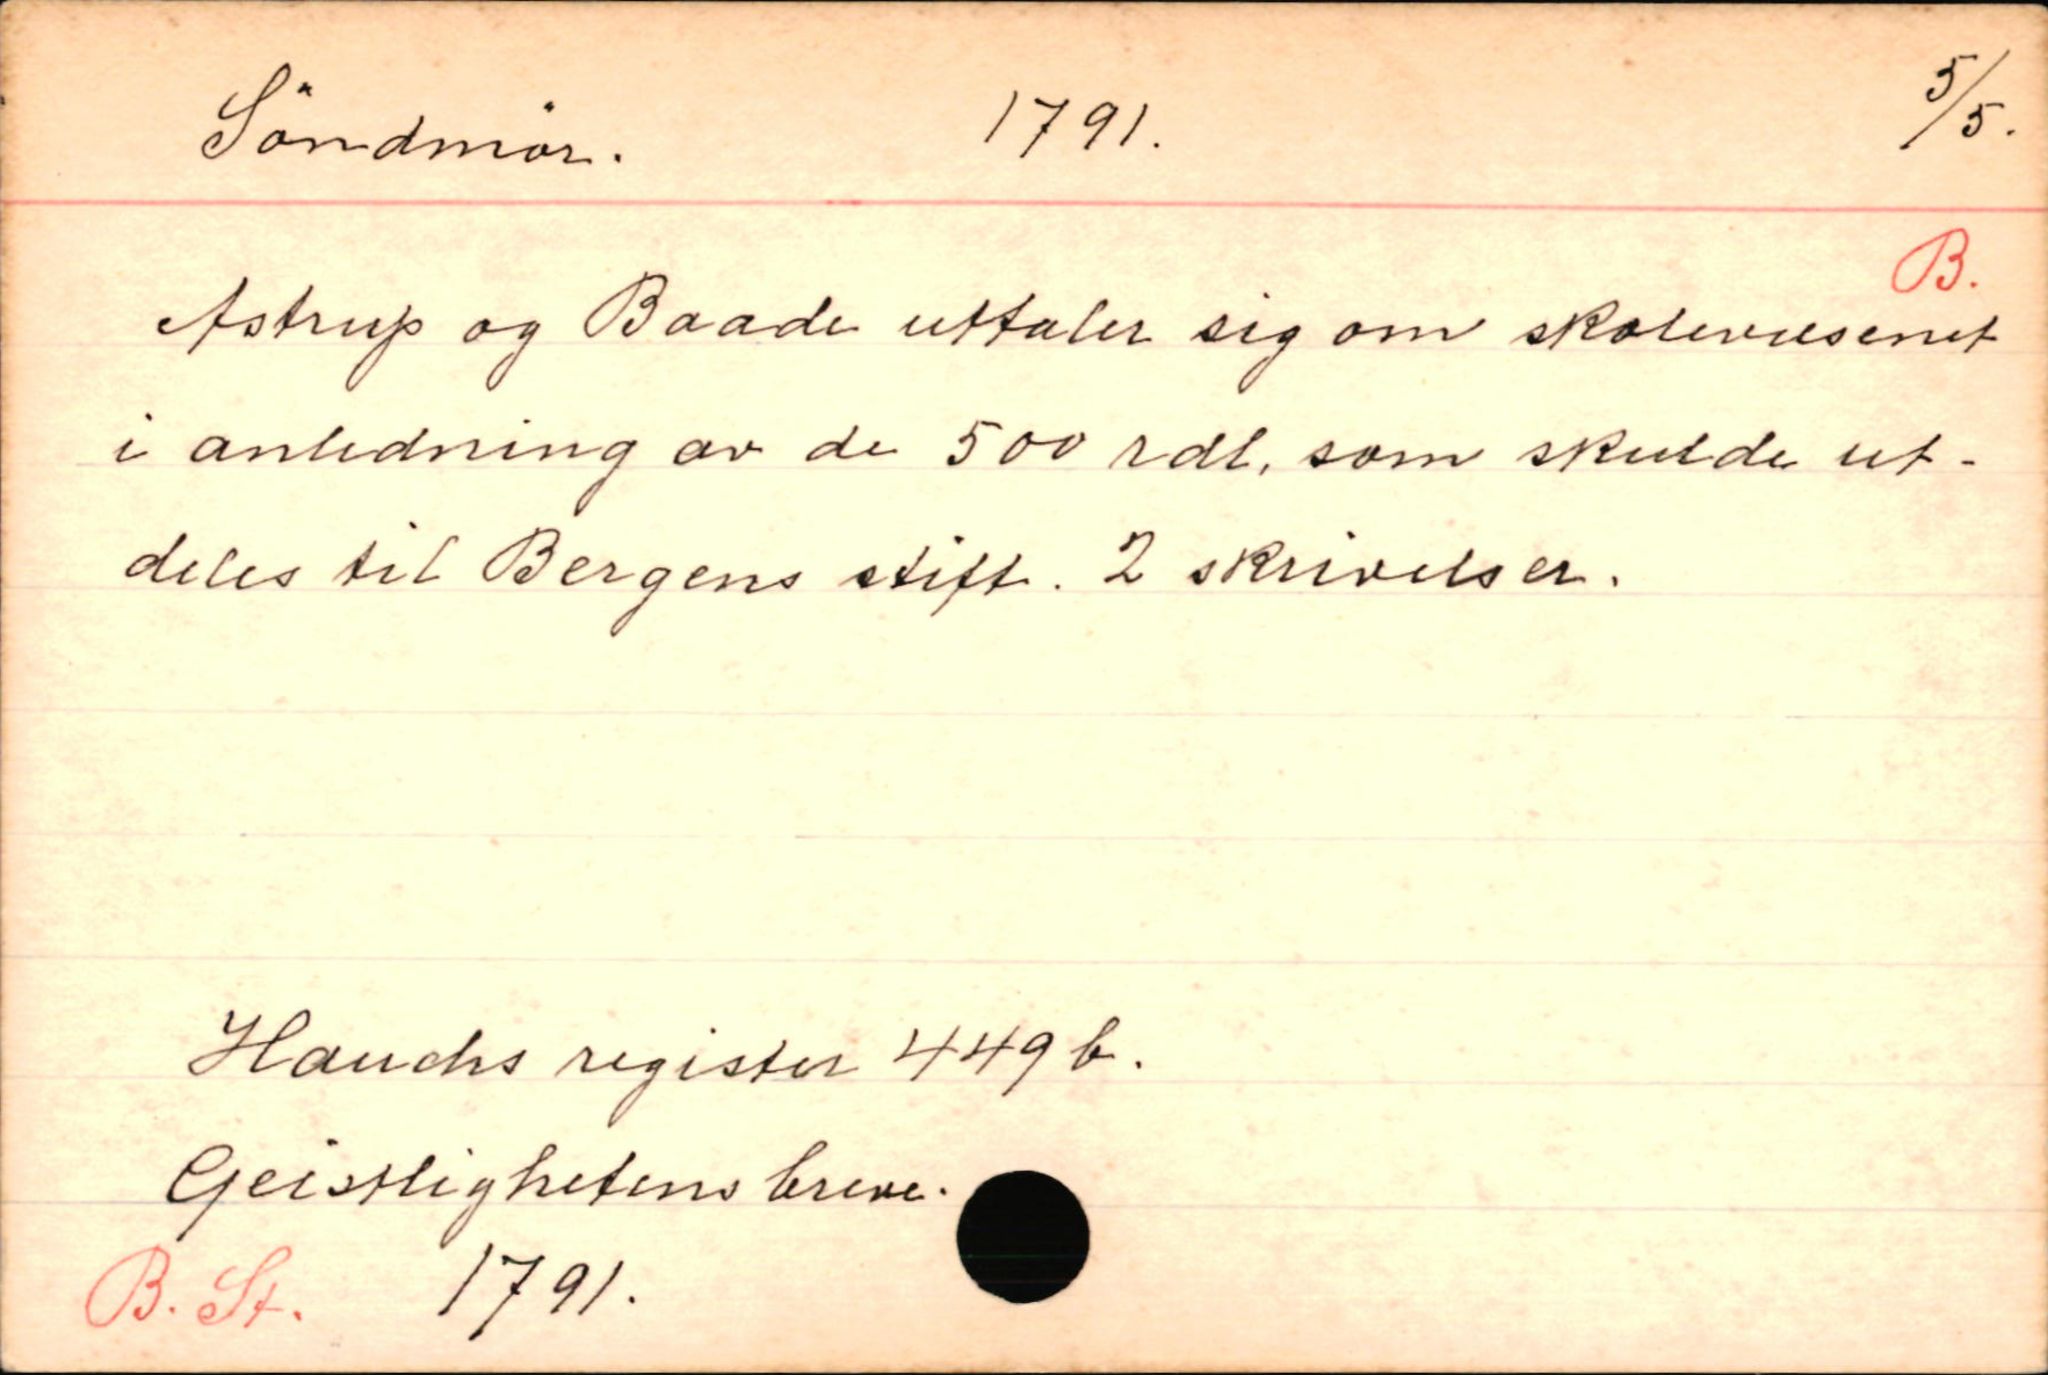 Söndmör. 1791. 5/5.
B.
Astrup og Baade uttaler sig om skolevæsenet
i anledning av de 500 rdl. som skulde ut-
deles til Bergens stift. 2 skrivelser.
Hauchs register 449 b.
Geistlighetens breve.
B. St. 1791.